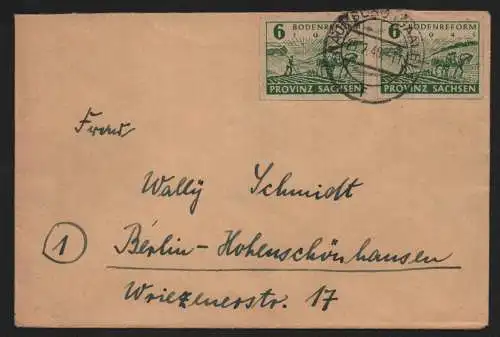 6 BODENREFORM
1945
PROVINZ SACHSEN
6 BODENREFORM
1945
PROVINZ SACHSEN
Frau
Wally Schmidt
1
Berlin-Hohenschönhausen
Wriezenerstr. 17